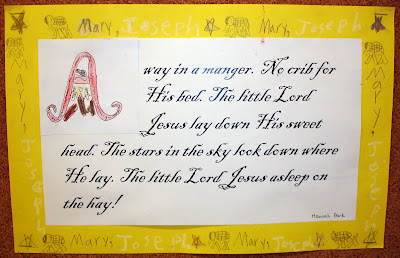 Mary, Joseph Mary, Joseph
Mary
Joseph
A way in a manger. No crib for
His bed. The little Lord
Jesus lay down His sweet
head. The stars in the sky look down where
He lay. The little Lord Jesus asleep on
the hay!
Mary
Joseph
Mary, Joseph Mary, Joseph